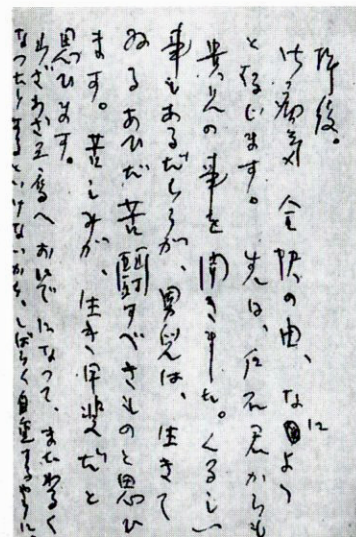 拝復。
御病気全快の由、なによ
と存じます。先日、仁石君からも
貴兄の事を聞きました。くるしい
事もあるだらうが、男児は、生きて
ゐるあひだ苦闘すべきものと思ひ
ます。苦しみが、生き甲斐だと
思ひます。
わざわざ三鷹へおいでになつて、またわるく
なつたりするといけないから、しばらく自重するやうに。